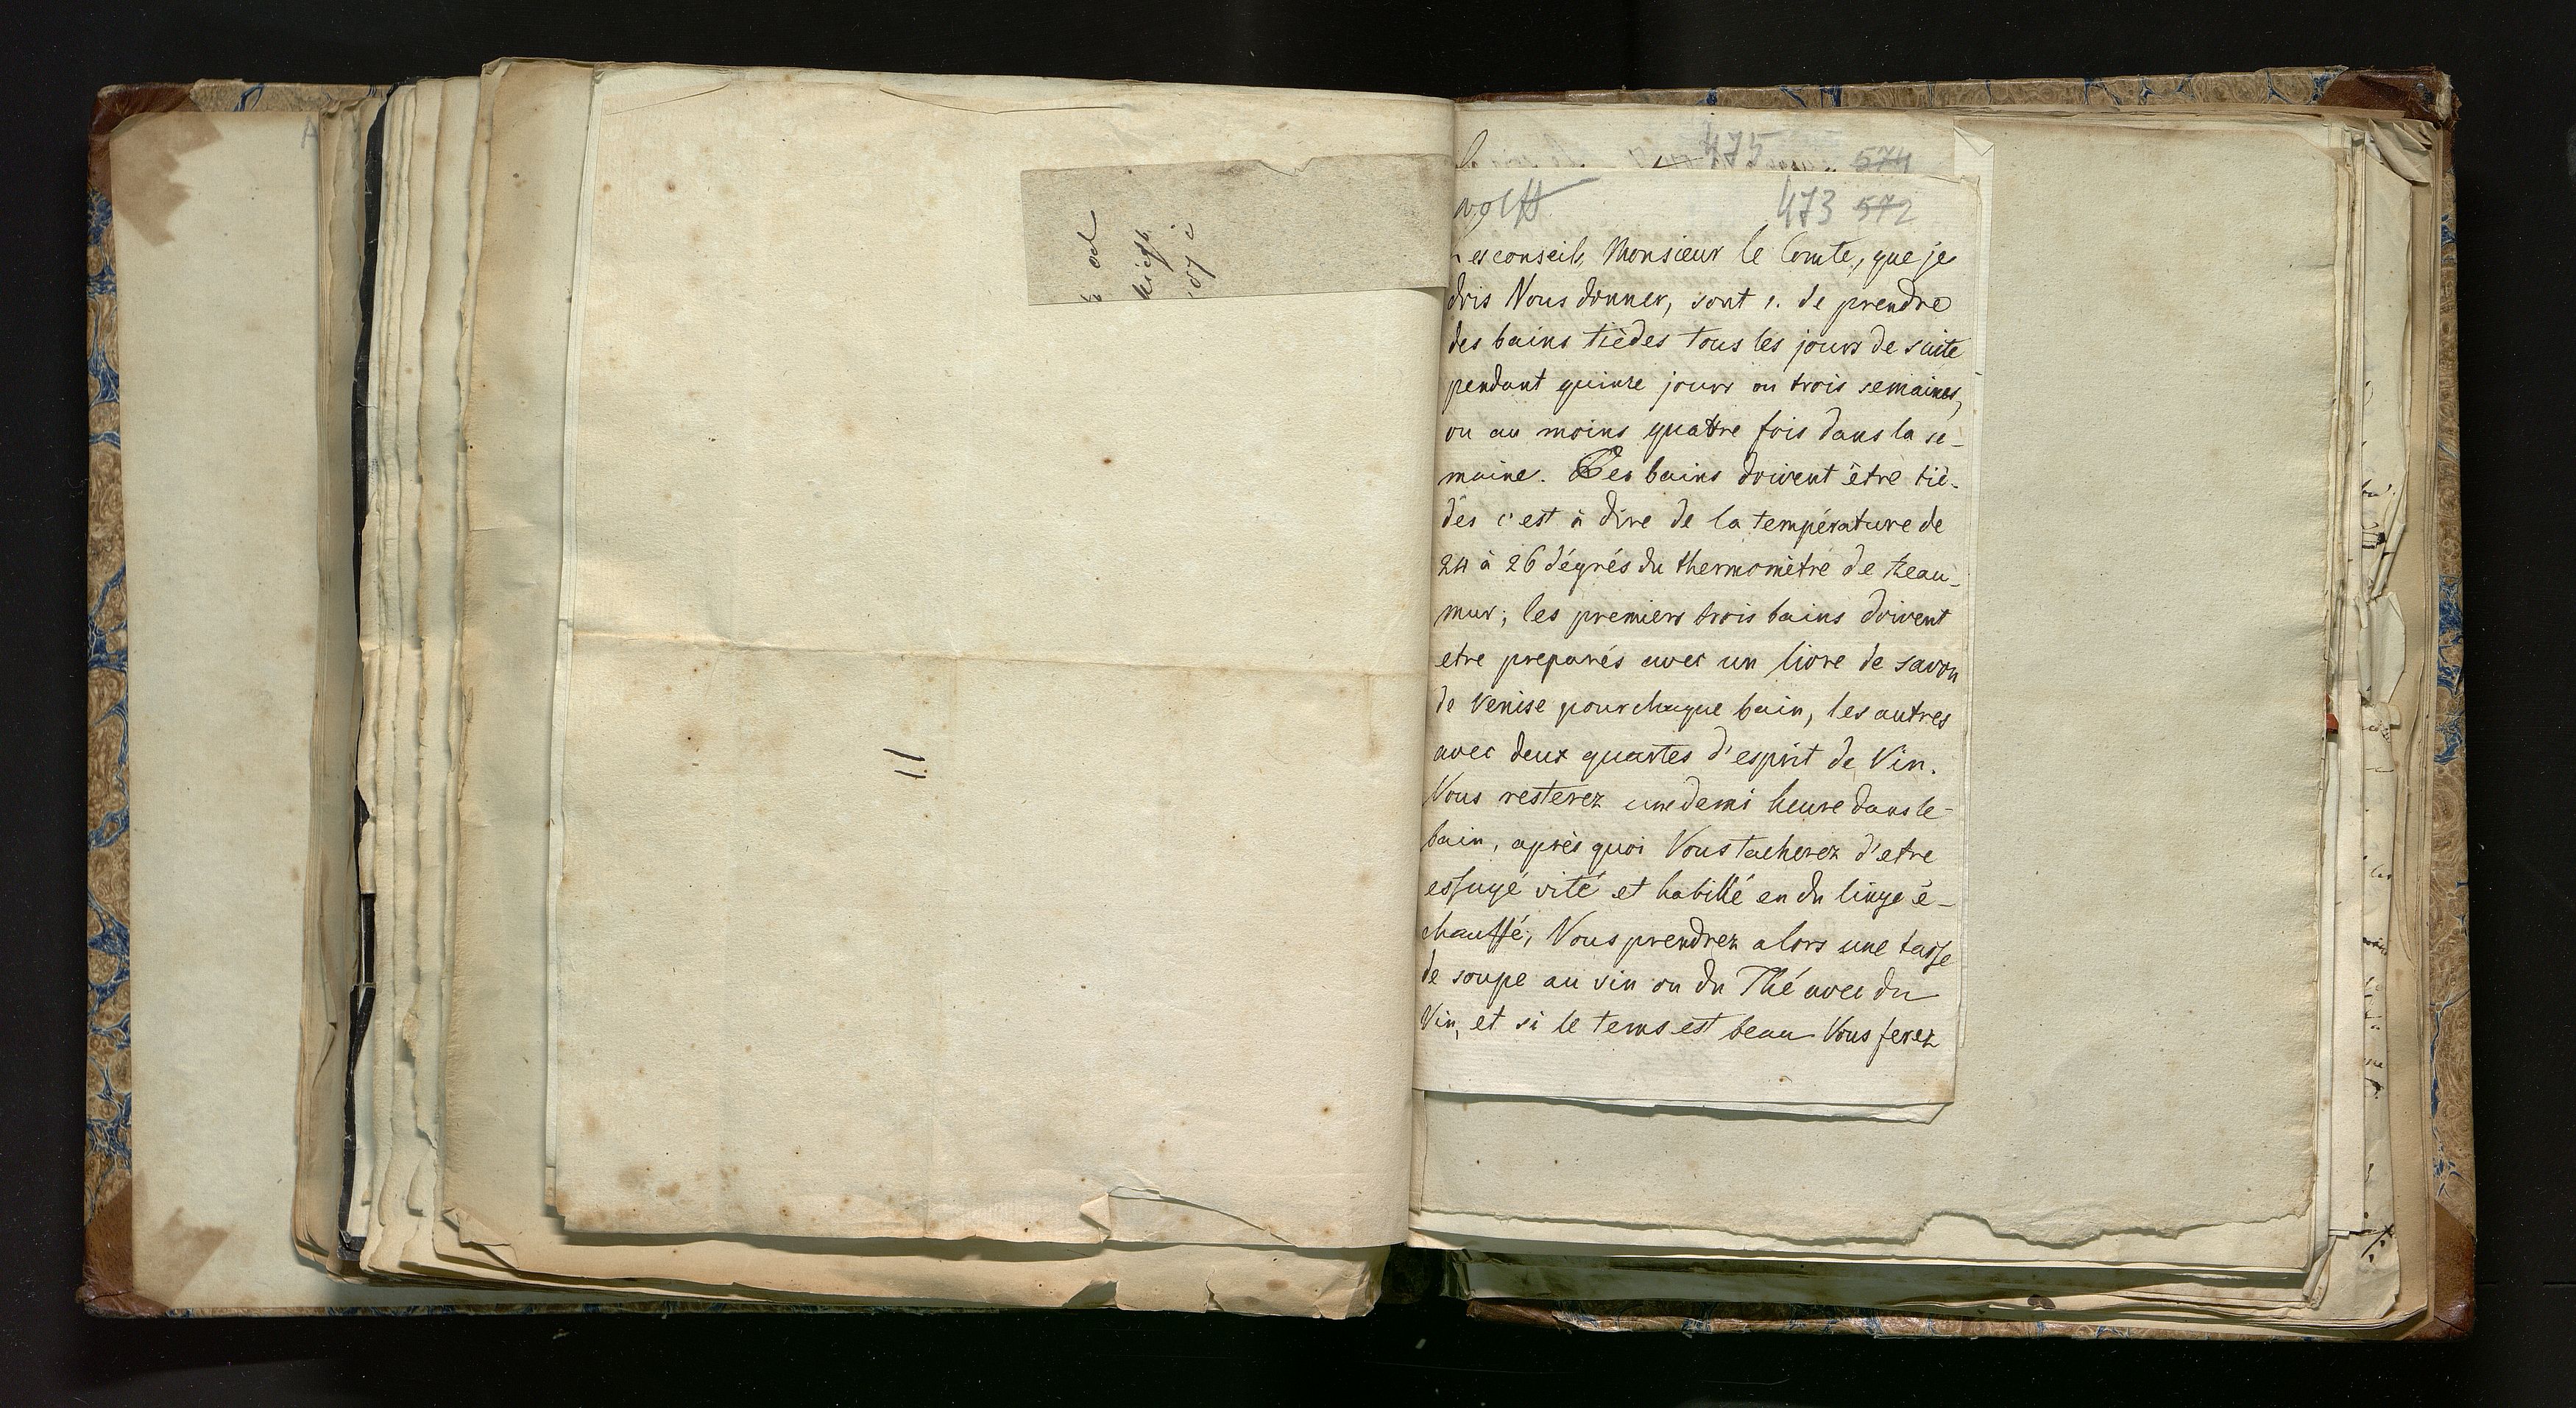 475 574
Wolff 473 572
Les conseils, Monsieur le Comte, que je
dois Vous donner, sont 1. de prendre
des bains tièdes tous les jours de suite
pendant quinze jours ou trois semaines,
ou au moins quattre fois dans la se-
maine. Ces bains doivent être tiè-
des c'est à dire de la température de
24 à 26 dégrés du thermomètre de Reau-
mur; les premiers trois bains doivent
etre preparés avec un livre de savon
de Venise pour chaque bain, les autres
avec deux quartes d'esprit de Vin.
Vous resterez une demi heure dans le
bain, après quoi Vous tacherez d'etre
essuyé vité et habillé en du linge é-
chauffé; Vous prendrez alors une tasse
de soupe au vin ou du Thé avec du
Vin, et si le tems est beau Vous ferez